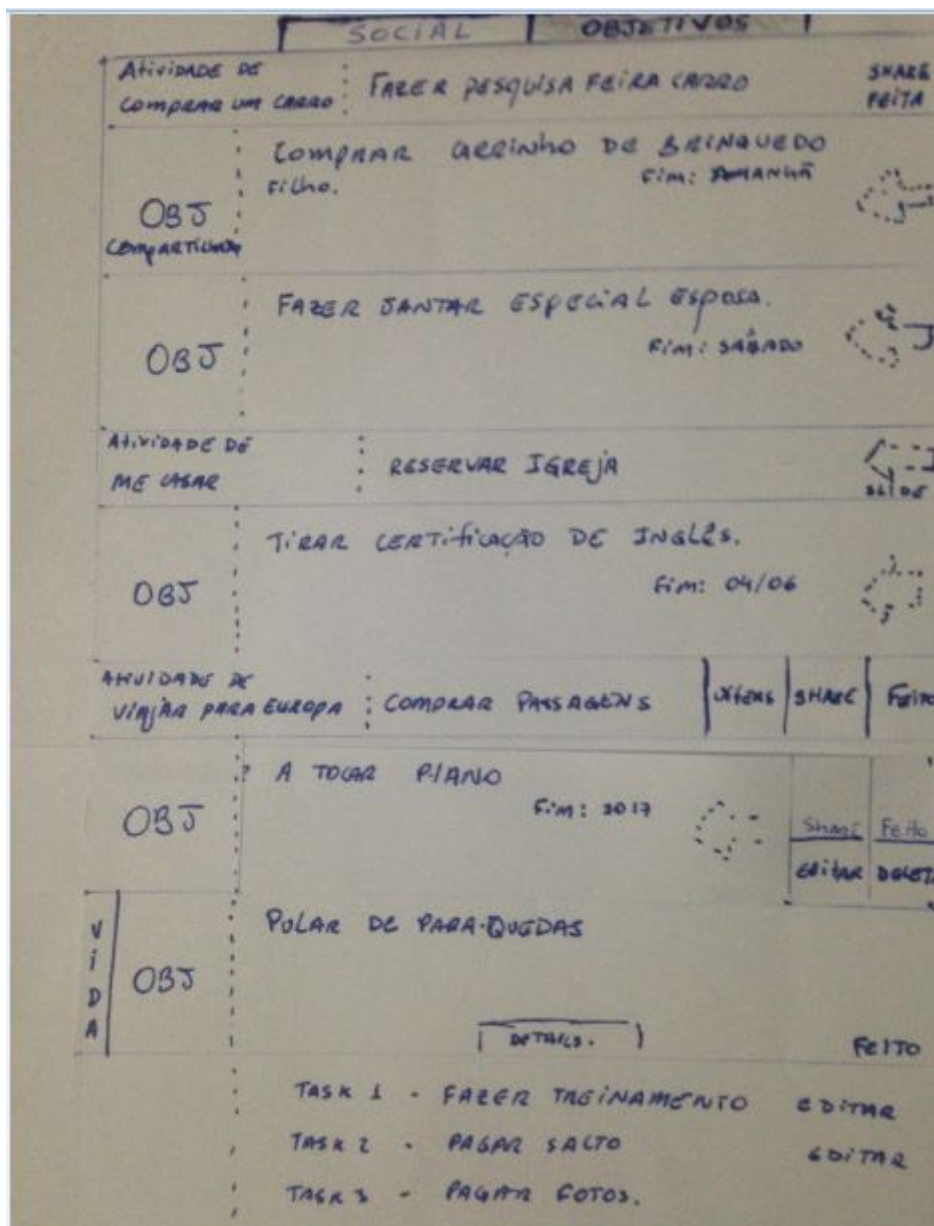 SOCIAL OBJETIVOS
Atividade de SHARE
comprar um carro FAZER PESQUISA FEIRA CARRO FEITA
COMPRAR CARRINHO DE BRINQUEDO
Filho. Fim: AMANHÃ
OBJ
COMPARTILHADO
FAZER JANTAR ESPECIAL ESPOSA.
Fim: SÁBADO
OBJ
Atividade de
ME CASAR RESERVAR IGREJA
SLIDE
TIRAR CERTIFICAÇÃO DE INGLÊS.
OBJ Fim: 04/06
Atividade de
VIAJAR PARA EUROPA COMPRAR PASSAGENS SHARE FEITO
A TOCAR PIANO
OBJ Fim: 2017
Share Feito
EDITAR
VIDA
PULAR DE PARA-QUEDAS
OBJ
DETAILS.
FEITO
TASK 1 - FAZER TREINAMENTO EDITAR
TASK 2 - PAGAR SALTO EDITAR
TASK 3 - PAGAR FOTOS.